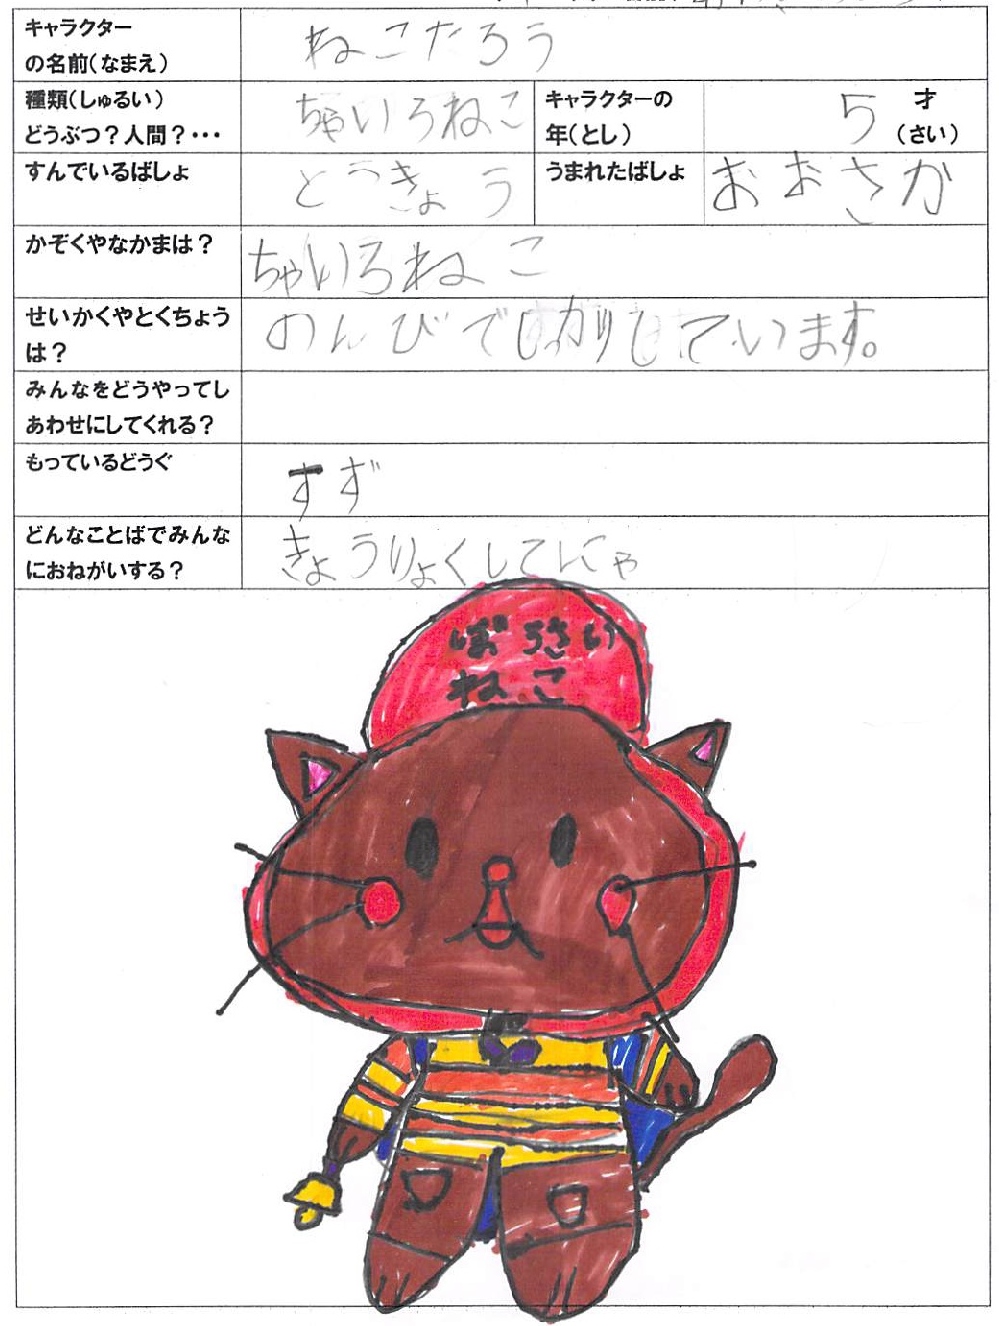 キャラクター
の名前(なまえ)
ねこたろう
種類(しゅるい)
どうぶつ？人間？・・・
ちゃいろねこ
キャラクターの
年(とし)
5 才
(さい)
すんでいるばしょ
とうきょう
うまれたばしょ
おおさか
かぞくやなかまは？
ちゃいろねこ
せいかくやとくちょう
は？
のんびでしっかりしています。
みんなをどうやってし
あわせにしてくれる？
もっているどうぐ
すず
どんなことばでみんな
におねがいする？
きょうりょくしてにゃ
ぼうさい
ねこ